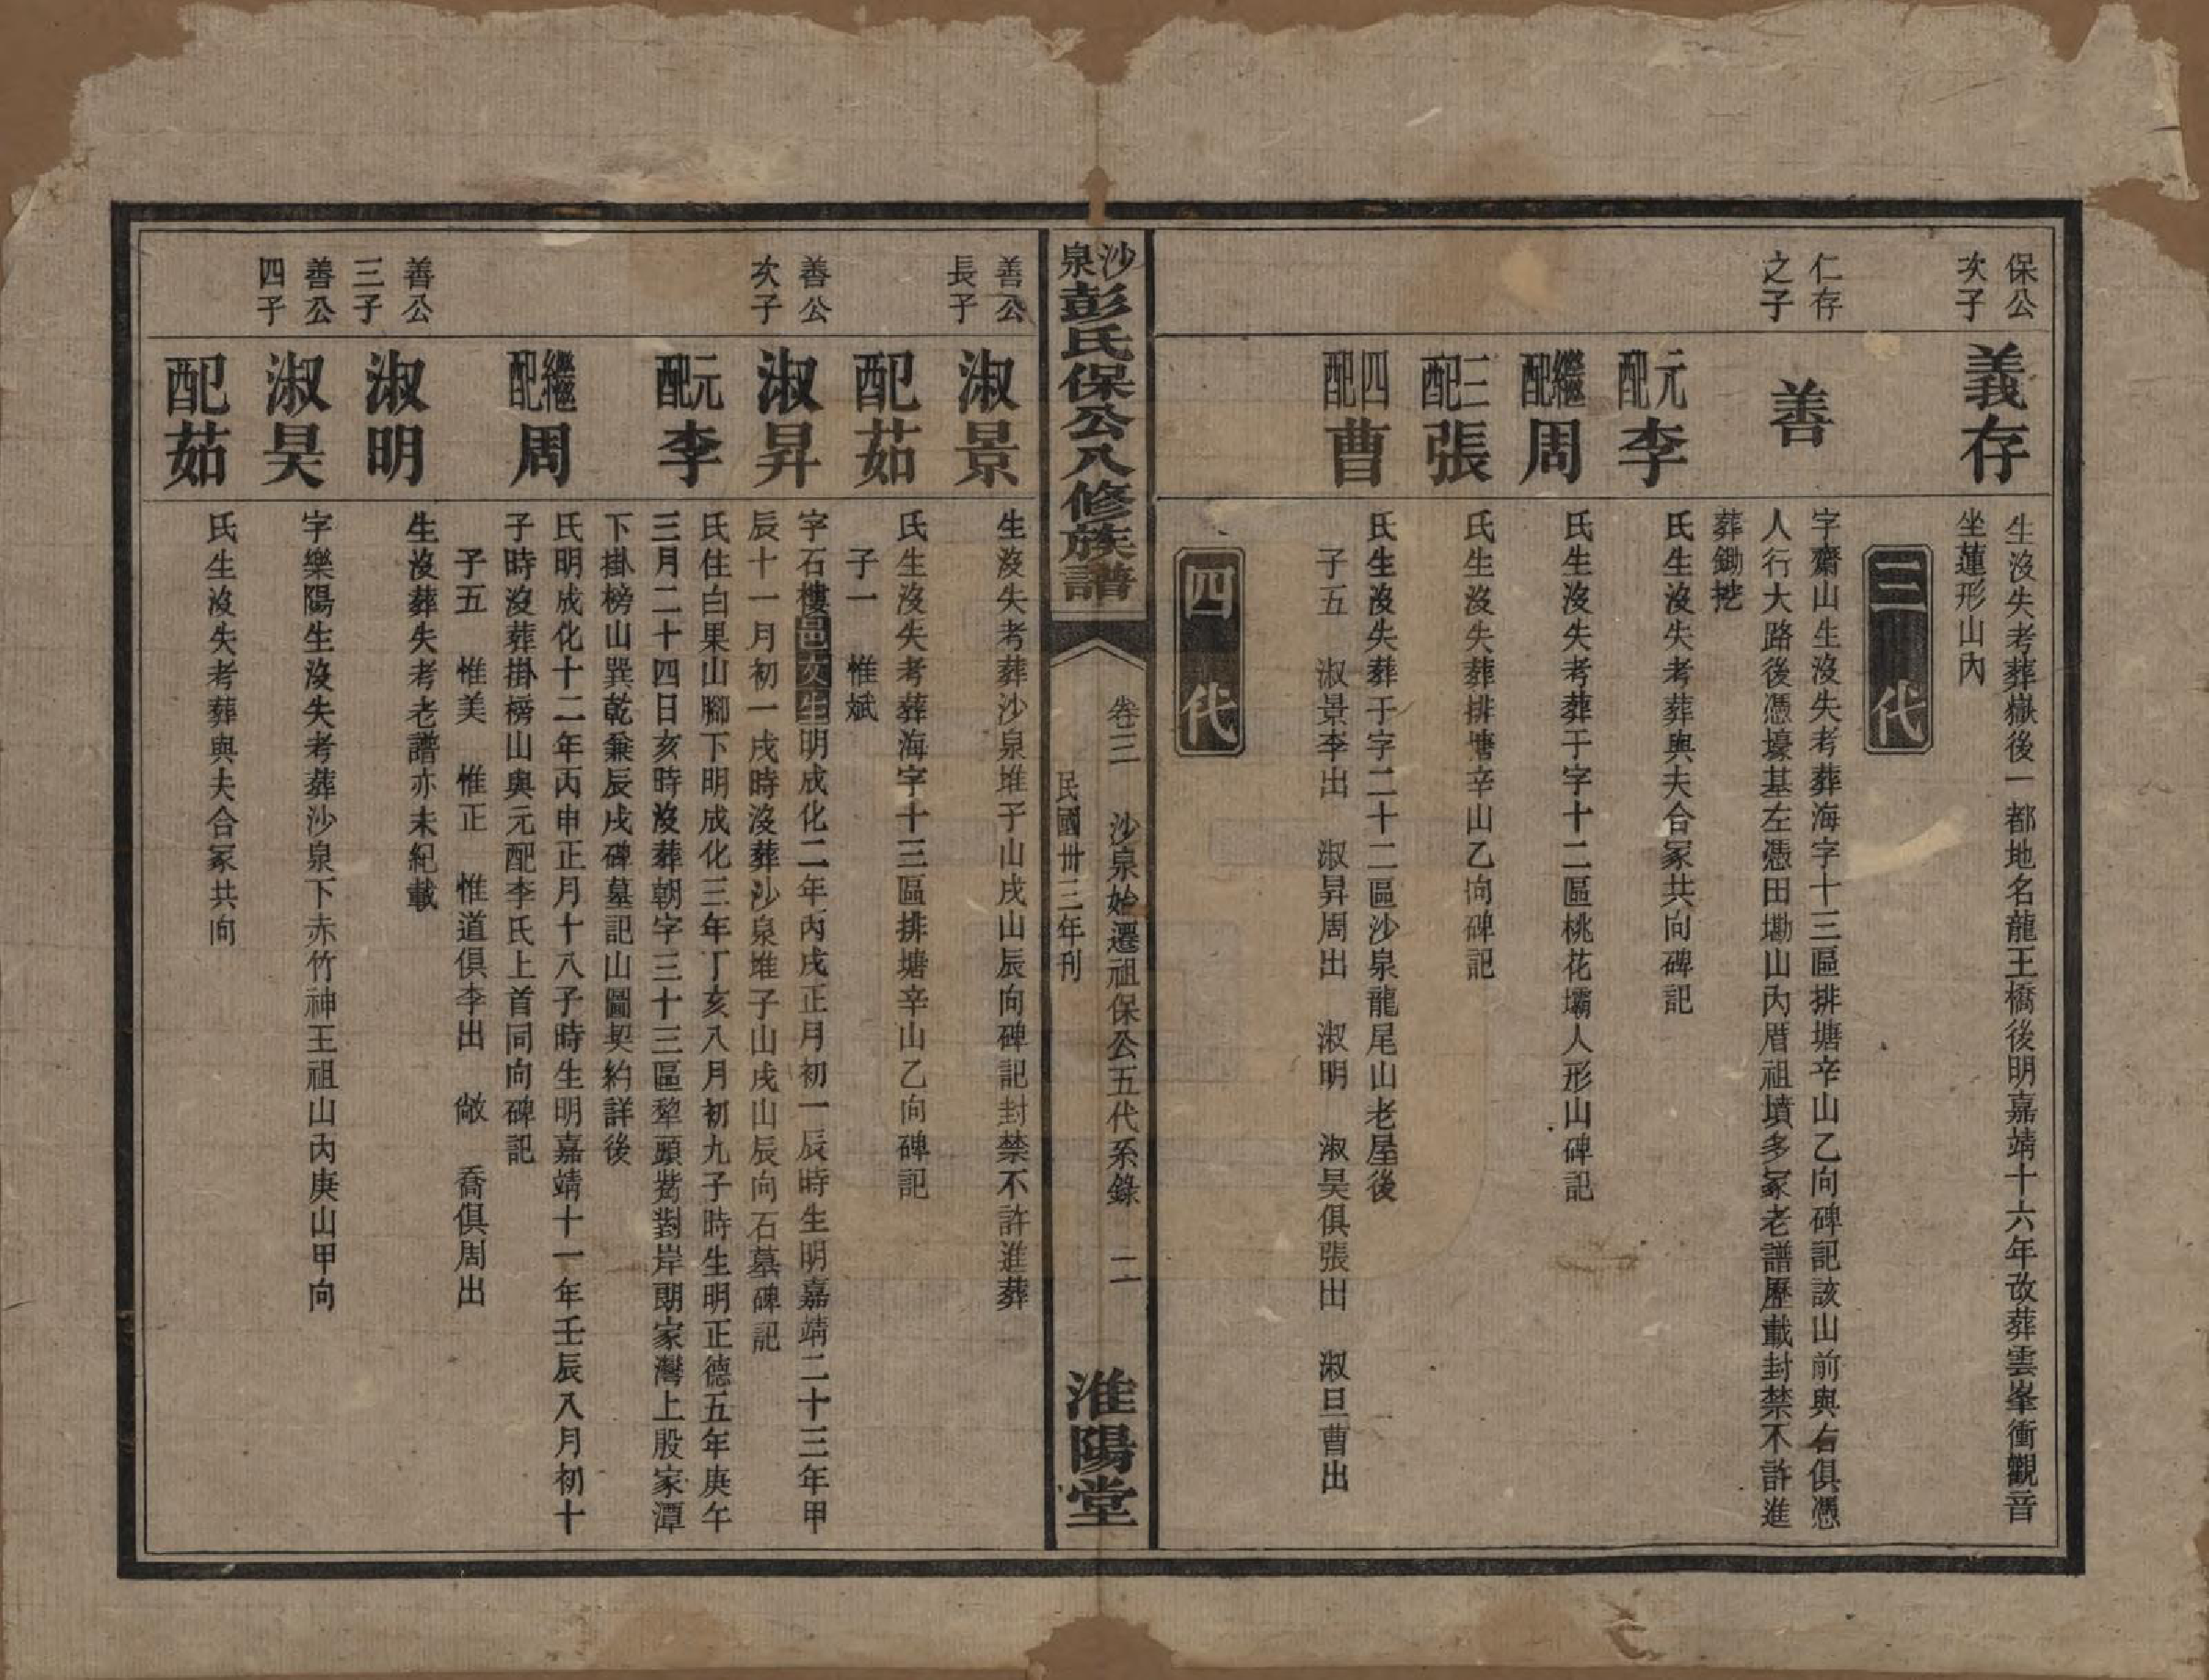 保公
次子
義存
生沒失考葬嶽後一都地名龍王橋後明嘉靖十六年改葬雲峯衝觀音
坐蓮形山內
三代
仁存
之子
善
字齋山生沒失考葬海字十三區排塘辛山乙向碑記該山前與右俱憑
人行大路後憑壕基左憑田墈山內厝祖墳多冢老譜歷載封禁不許進
葬鋤挖
元配李
氏生沒失考葬與夫合冢共向碑記
繼配周
氏生沒失考葬于字十二區桃花壩人形山碑記
三配張
氏生沒失葬排塘辛山乙向碑記
四配曹
氏生沒失葬于字二十二區沙泉龍尾山老屋後
子五 淑景李出 淑昇周出 淑明 淑昊俱張出 淑旦曹出
四代
沙泉彭氏保公八修族譜
卷三 沙泉始遷祖保公五代系錄 二
民國卅三年刊
淮陽堂
善公
長子
淑景
生沒失考葬沙泉堆子山戌山辰向碑記封禁不許進葬
配茹
氏生沒失考葬海字十三區排塘辛山乙向碑記
子一 惟斌
善公
次子
淑昇
字石樓邑庠生明成化二年丙戌正月初一辰時生明嘉靖二十三年甲
辰十一月初一戌時沒葬沙泉堆子山戌山辰向石墓碑記
元配李
氏住白果山腳下明成化三年丁亥八月初九子時生明正德五年庚午
三月二十四日亥時沒葬朝字三十三區犂頭觜對岸朗家灣上殷家潭
下掛榜山巽乾兼辰戌碑墓記山圖契約詳後
繼配周
氏明成化十二年丙申正月十八子時生明嘉靖十一年壬辰八月初十
子時沒葬掛榜山與元配李氏上首同向碑記
子五 惟美 惟正 惟道俱李出 敞 喬俱周出
善公
三子
淑明
生沒葬失考老譜亦未紀載
善公
四子
淑昊
字樂陽生沒失考葬沙泉下赤竹神王祖山內庚山甲向
配茹
氏生沒失考葬與夫合冢共向